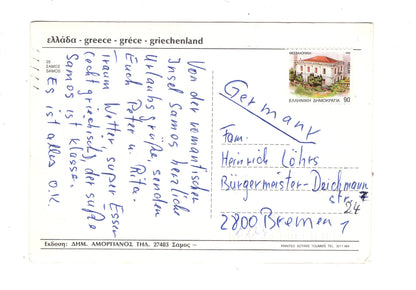 ελλάδα - greece - gréce - griechenland
28
ΣΑΜΟΣ
SAMOS
Von der romantischen
Insel Samos herzliche
Urlaubsgrüße, senden
Euch Peter u. Rita.
Traum Wetter, super Essen
(echt griechisch), der süße
Samos ist klasse.
Es ist alles o.k.
!!!!!
ΕΛΛΗΝΙΚΗ ΔΗΜΟΚΡΑΤΙΑ 90
Germany
Fam.
Heinrich Löhrs
Bürgermeister-Deichmann
str. 24
2800 Bremen 1
Εκδοση: ΔΗΜ. ΑΜΟΡΓΙΑΝΟΣ ΤΗΛ. 27403 Σάμος